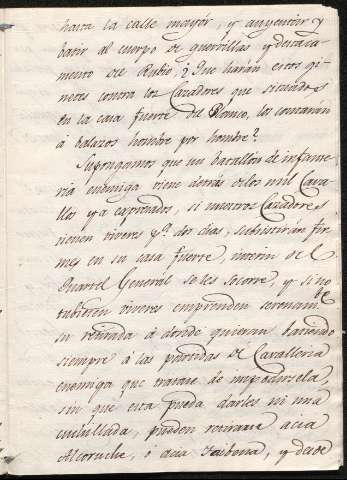 hasta la calle mayor, y auyentar y
batir al cuerpo de guerrillas y destaca-
mento de Rubio? Que harán estos gi-
netes contra los Cazadores que situados
en la casa fuerte del Banco, los contarán
á balazos hombre por hombre?
Supongamos que un batallón de infante-
ría enemiga viene detrás de los mil Cava-
llos ya expresados, si nuestros Cazadores
tienen viveres pª. dos dias, subsistirán fir-
mes en su casa fuerte, interin del
Quartel General se les socorre, y si no
tubieren viveres emprenden serenamte
su retirada á donde quieran batiendo
siempre á las partidas de Cavalleria
enemiga que traten de impedirsela,
sin que esta pueda darles ni una
cuchillada, pueden retirarse acia
Alcoruche, ó acia y desde